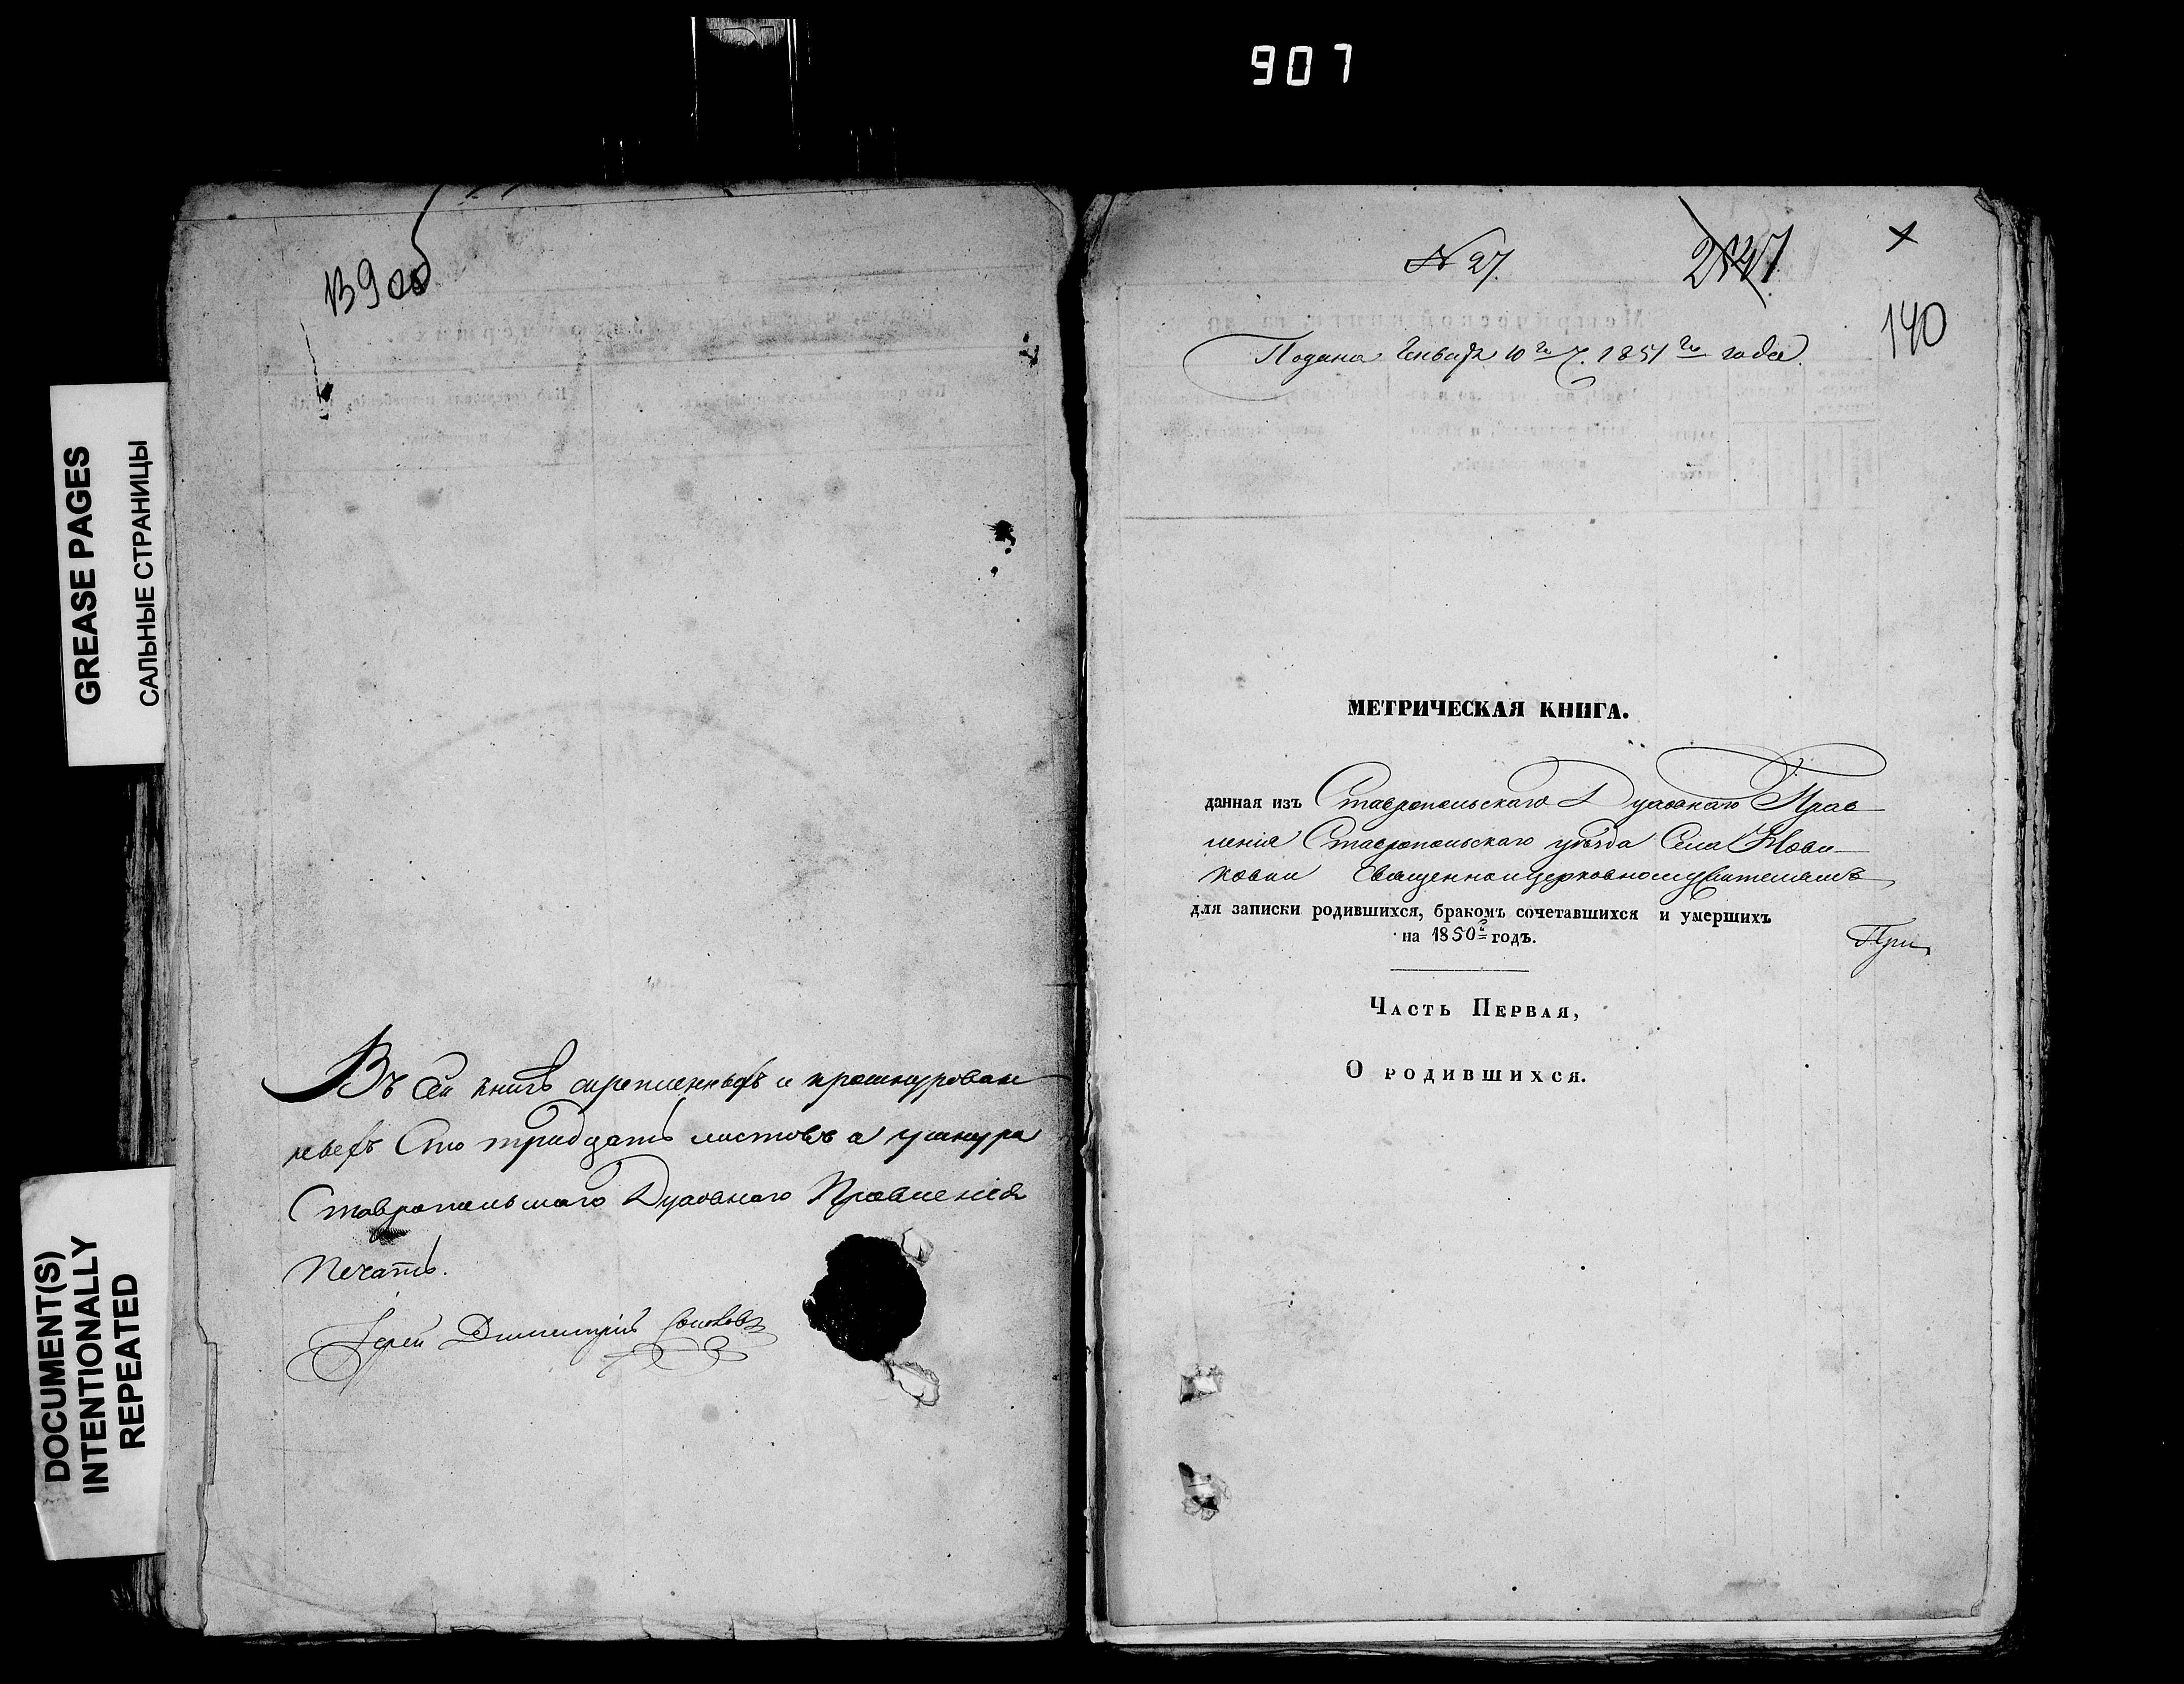 907
GREASE PAGES
САЛЬНЫЕ СТРАНИЦЫ
DOCUMENT(S)
INTENTIONALLY
REPEATED
139 об
Въ сей книгѣ скрепленныхъ и прошнурован
ныхъ Сто тридцать листовъ а у шнура
Ставропольскаго Духовнаго Правленія
Печать.
Іерей Димитрій
№ 27.
140
Подана Генваря 10го ч. 1851го года.
МЕТРИЧЕСКАЯ КНИГА.
данная изъ Ставропольскаго Духовнаго Прав
ленія Ставропольскаго уѣзда Села Нови
ковки Священноицерковнослужителямъ
для записки родившихся, бракомъ сочетавшихся и умершихъ
на 1850й годъ.
При
Часть Первая,
О родившихся.